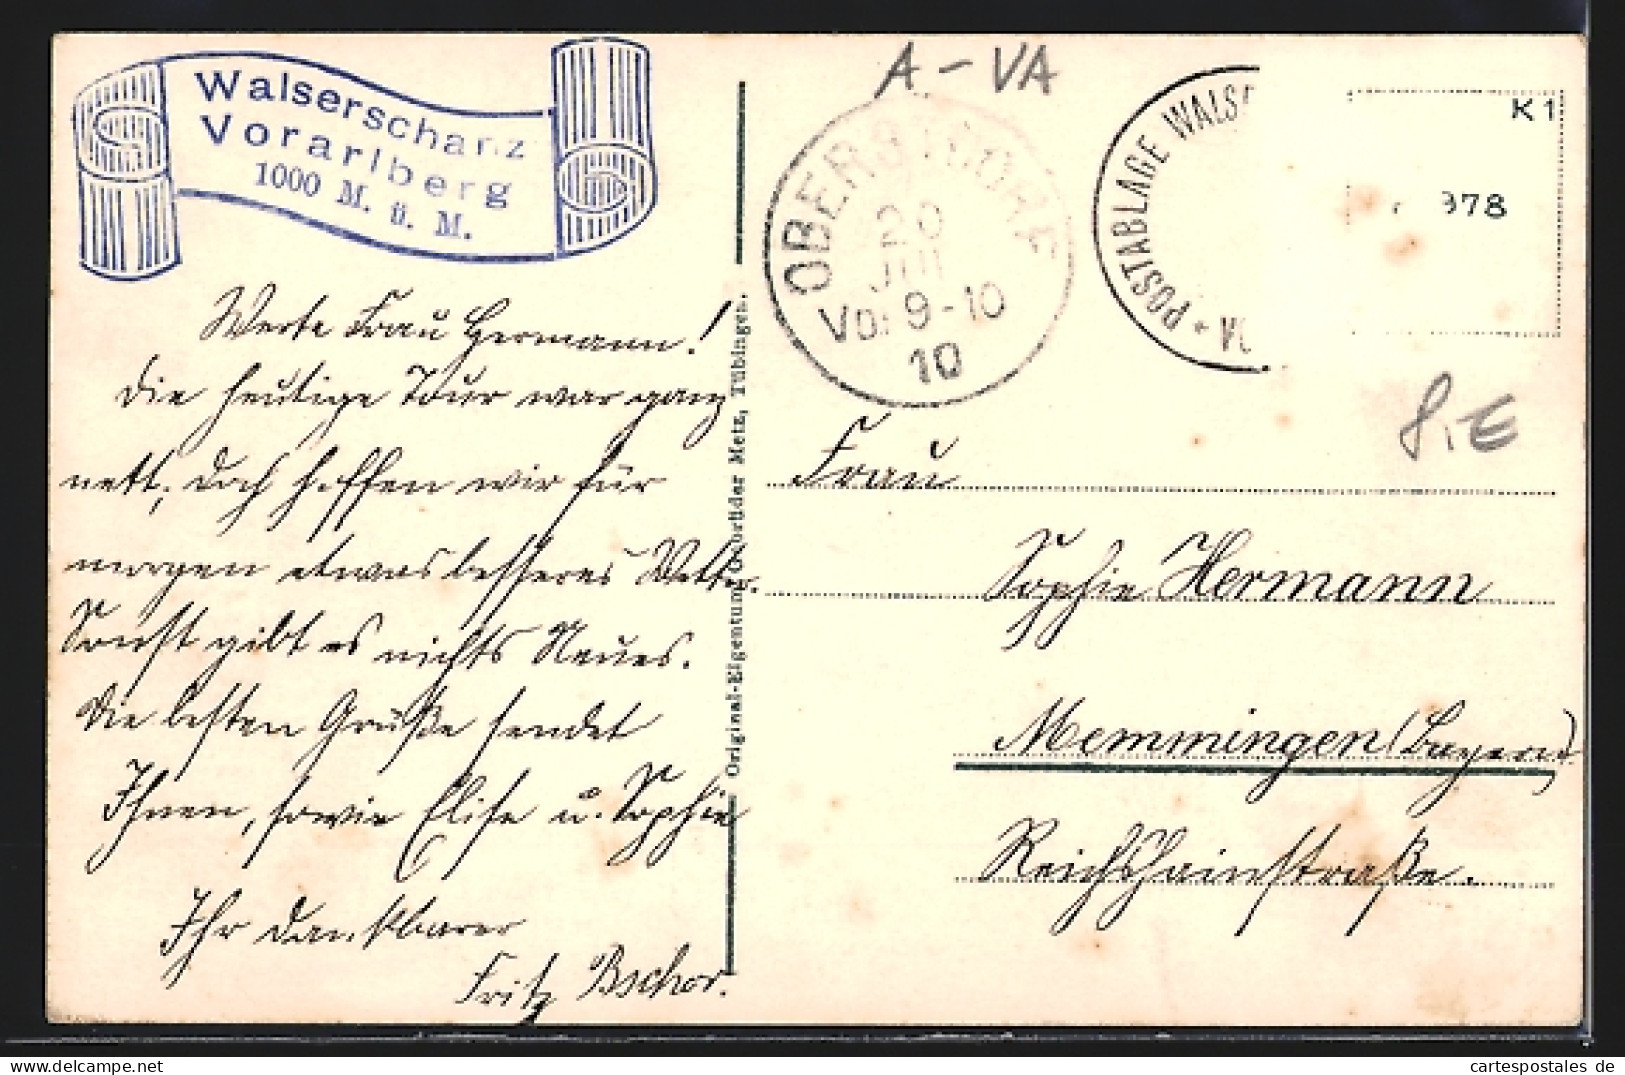 Walserschanz
Vorarlberg
1000 M. ü. M.
A - VA
OBERSTDORF
20
JUL
Vor 9-10
10
* POSTABLAGE WALSE
VO
K 1
978
8,€
Werte Frau Hermann!
Die heutige Tour war ganz
nett, doch hoffen wir für
morgen etwas besseres Wetter.
Sonst gibt es nichts Neues.
Die besten Grüße sendet
Ihnen, sowie Elise u. Sophie
Ihr dankbarer
Fritz Bschor.
Original-Eigentum Gebrüder Metz, Tübingen.
Frau
Sophie Hermann
Memmingen (Bayern)
Reichshainstraße.
cartespostales de